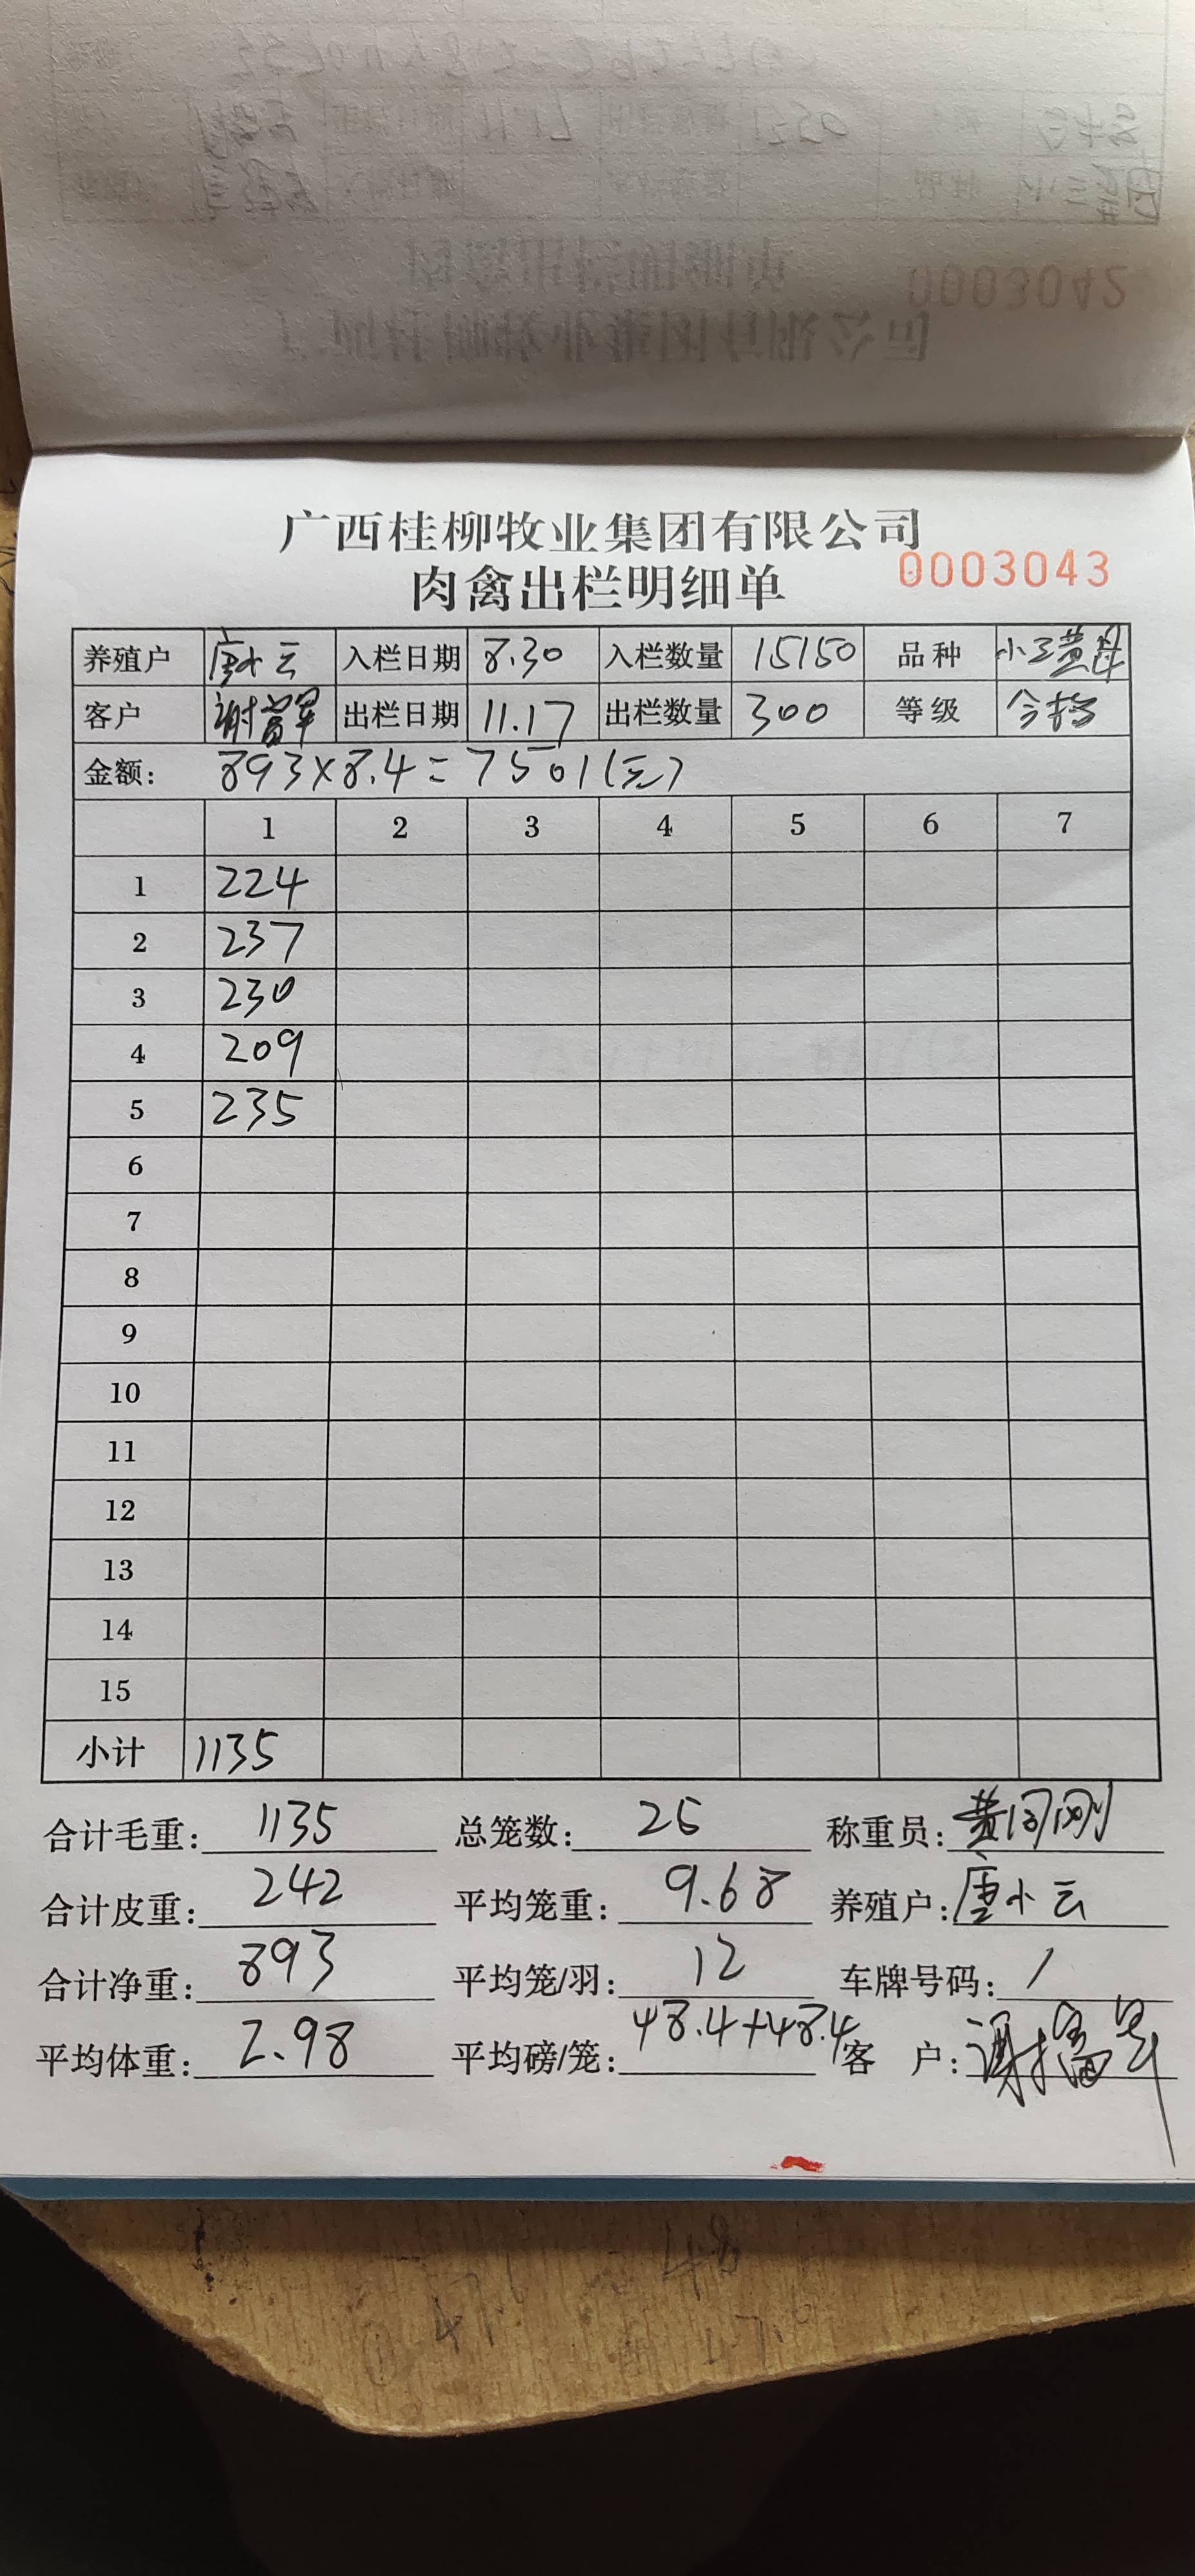 0003042
广西桂柳牧业集团有限公司
肉禽出栏明细单
0003043
养殖户 唐小云 入栏日期 8.30 入栏数量 15150 品种
客户 出栏日期 11.17 出栏数量 300 等级 合格
金额: 893×8.4=7501(元)
1 2 3 4 5 6 7
1 224
2 237
3 230
4 209
5 235
6
7
8
9
10
11
12
13
14
15
小计 1135
合计毛重: 1135 总笼数: 25 称重员:
合计皮重: 242 平均笼重: 9.68 养殖户: 唐小云
合计净重: 893 平均笼/羽: 12 车牌号码: /
平均体重: 2.98 平均磅/笼: 48.4+48.4 客 户: